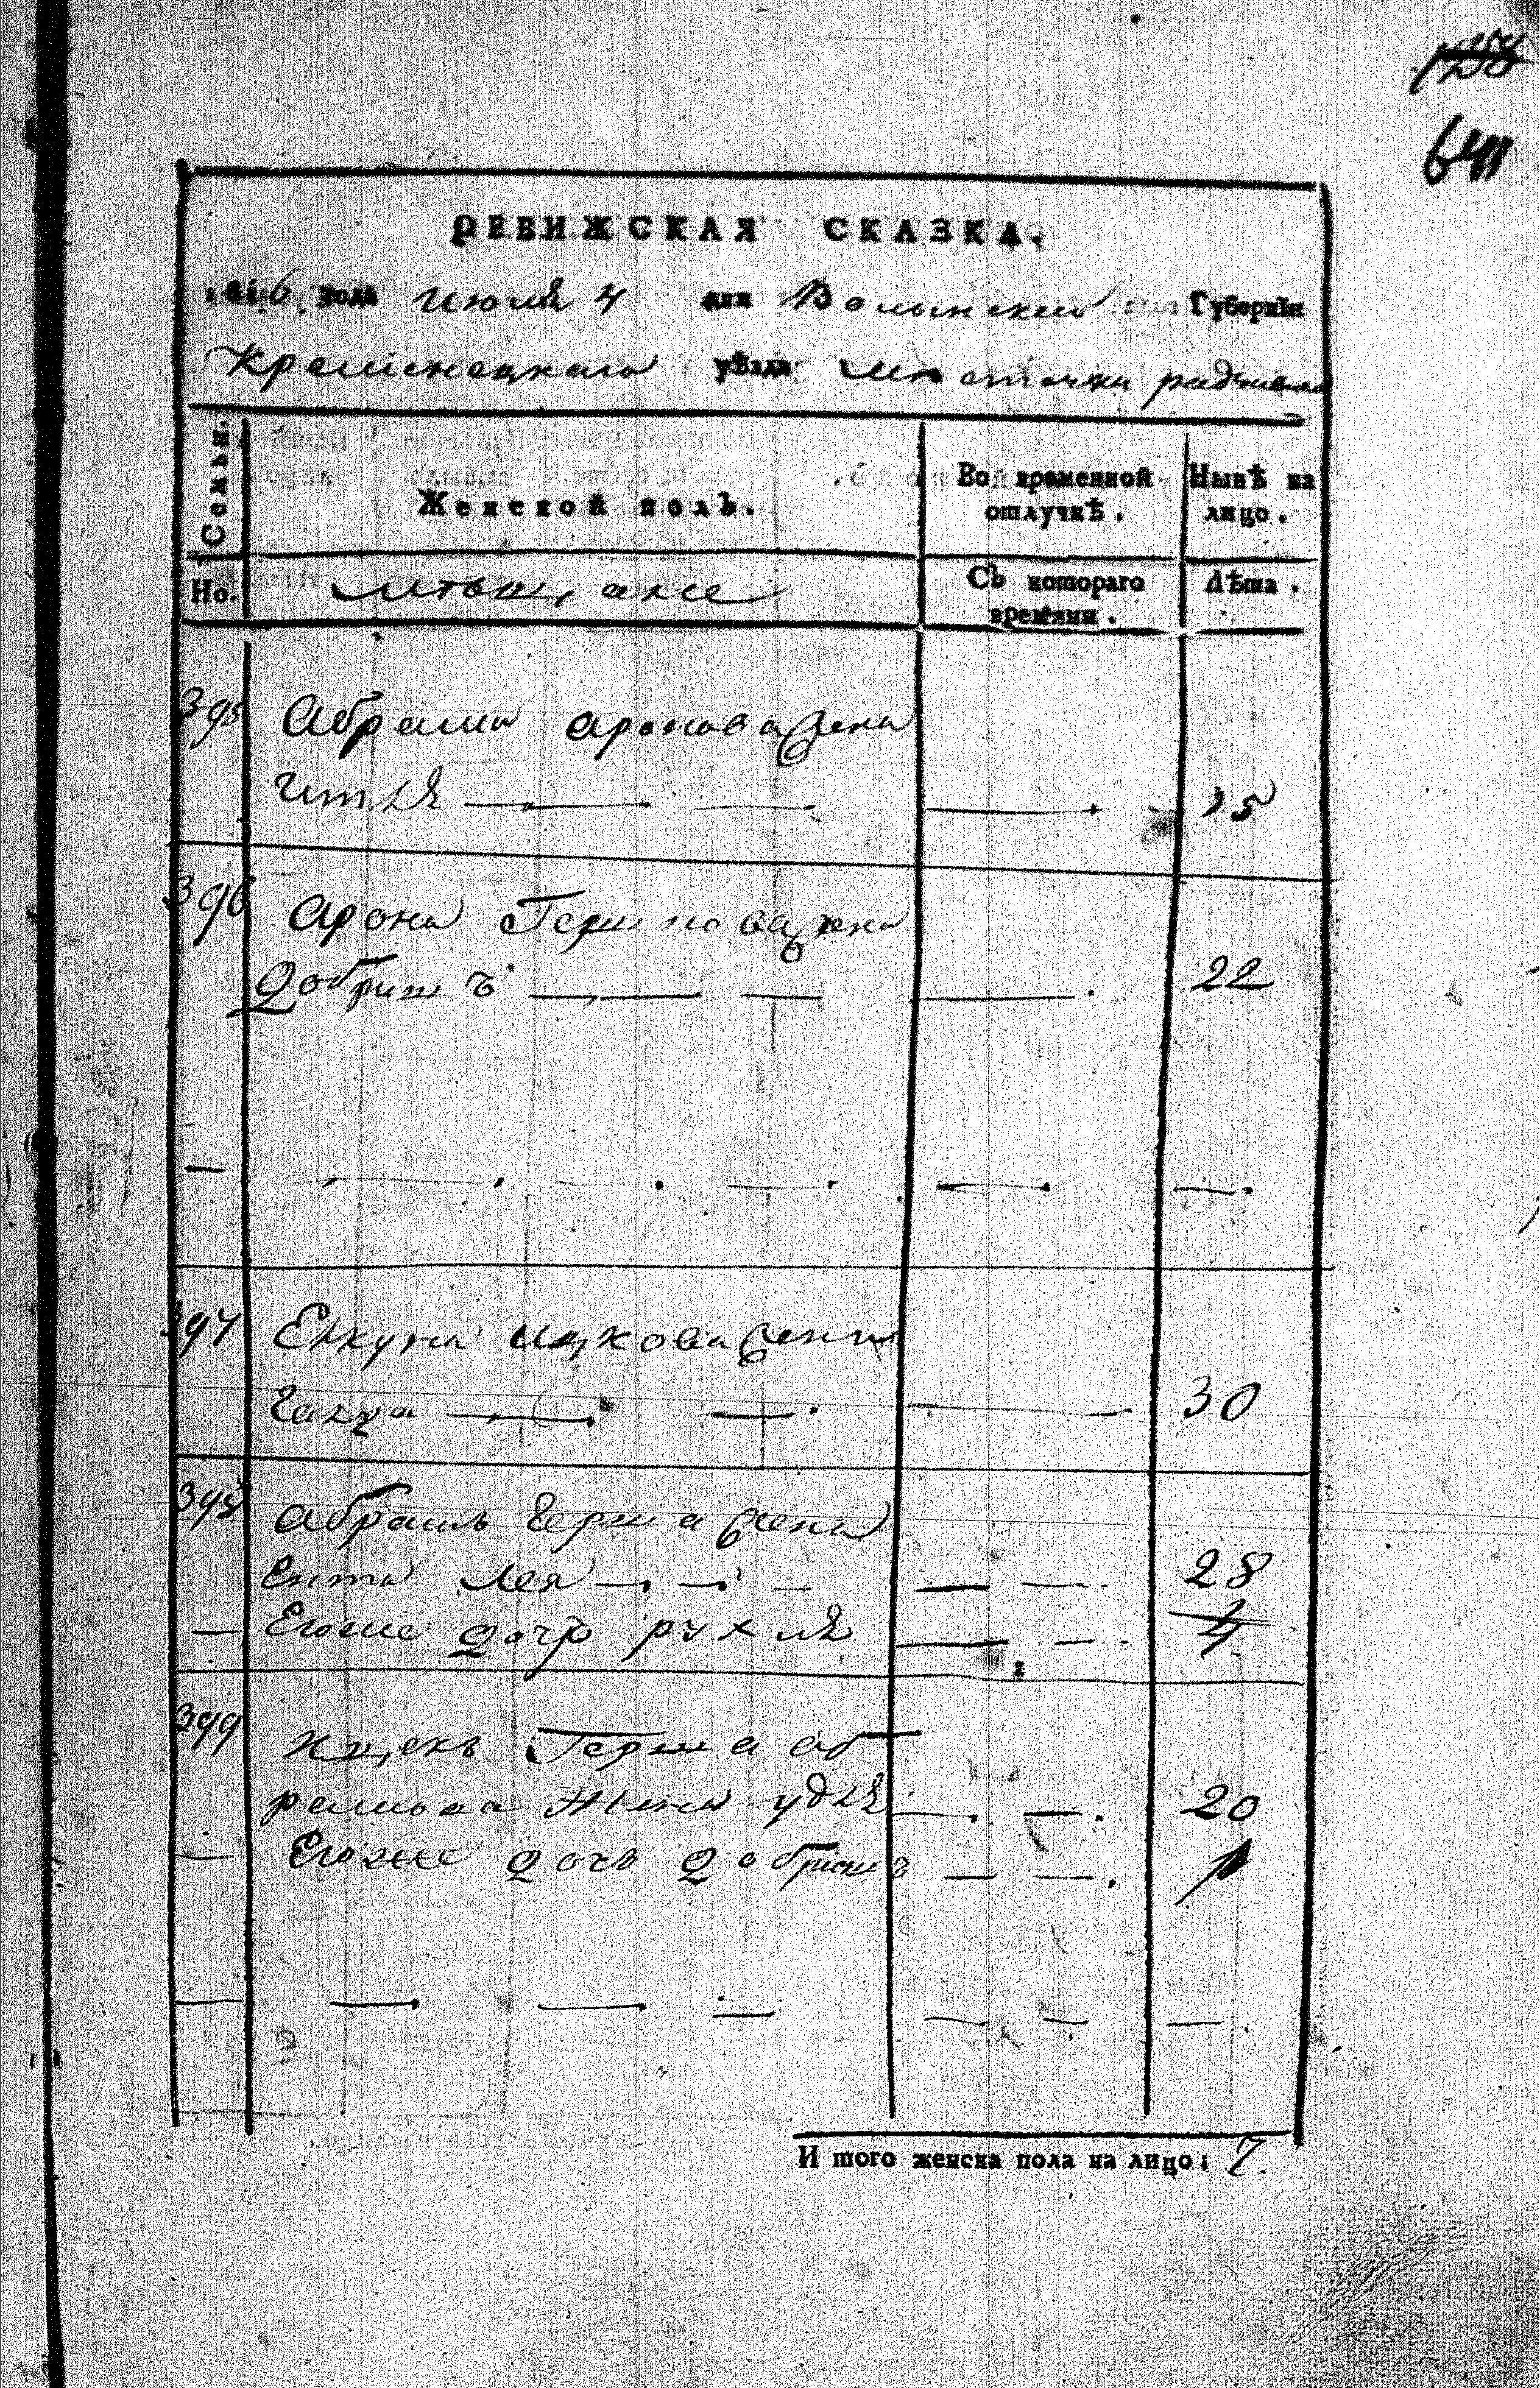 641
РЕВИЖСКАЯ СКАЗКА.
1816 года Июля 4 дня Волынской Губернїи
Кременецкаго уѣзда местечка радзивило
Семьи.
Женской полъ.
Во временной отлучкѣ.
Нынѣ на лицо.
Но.
мещане
Съ котораго времяни.
Лѣта.
395 Абрама аронова жена
15
396 Арона Гершкова жена
Добришъ 22
397 Ицкова жена
Хайка 30
398 абрамъ Герша жена
Ента Лея 28
Егоже дочь рухля 4
399 Ицекъ Герша аб
рамова жена удля 20
Егоже дочь Добришъ 1
И того женска пола на лицо: 7